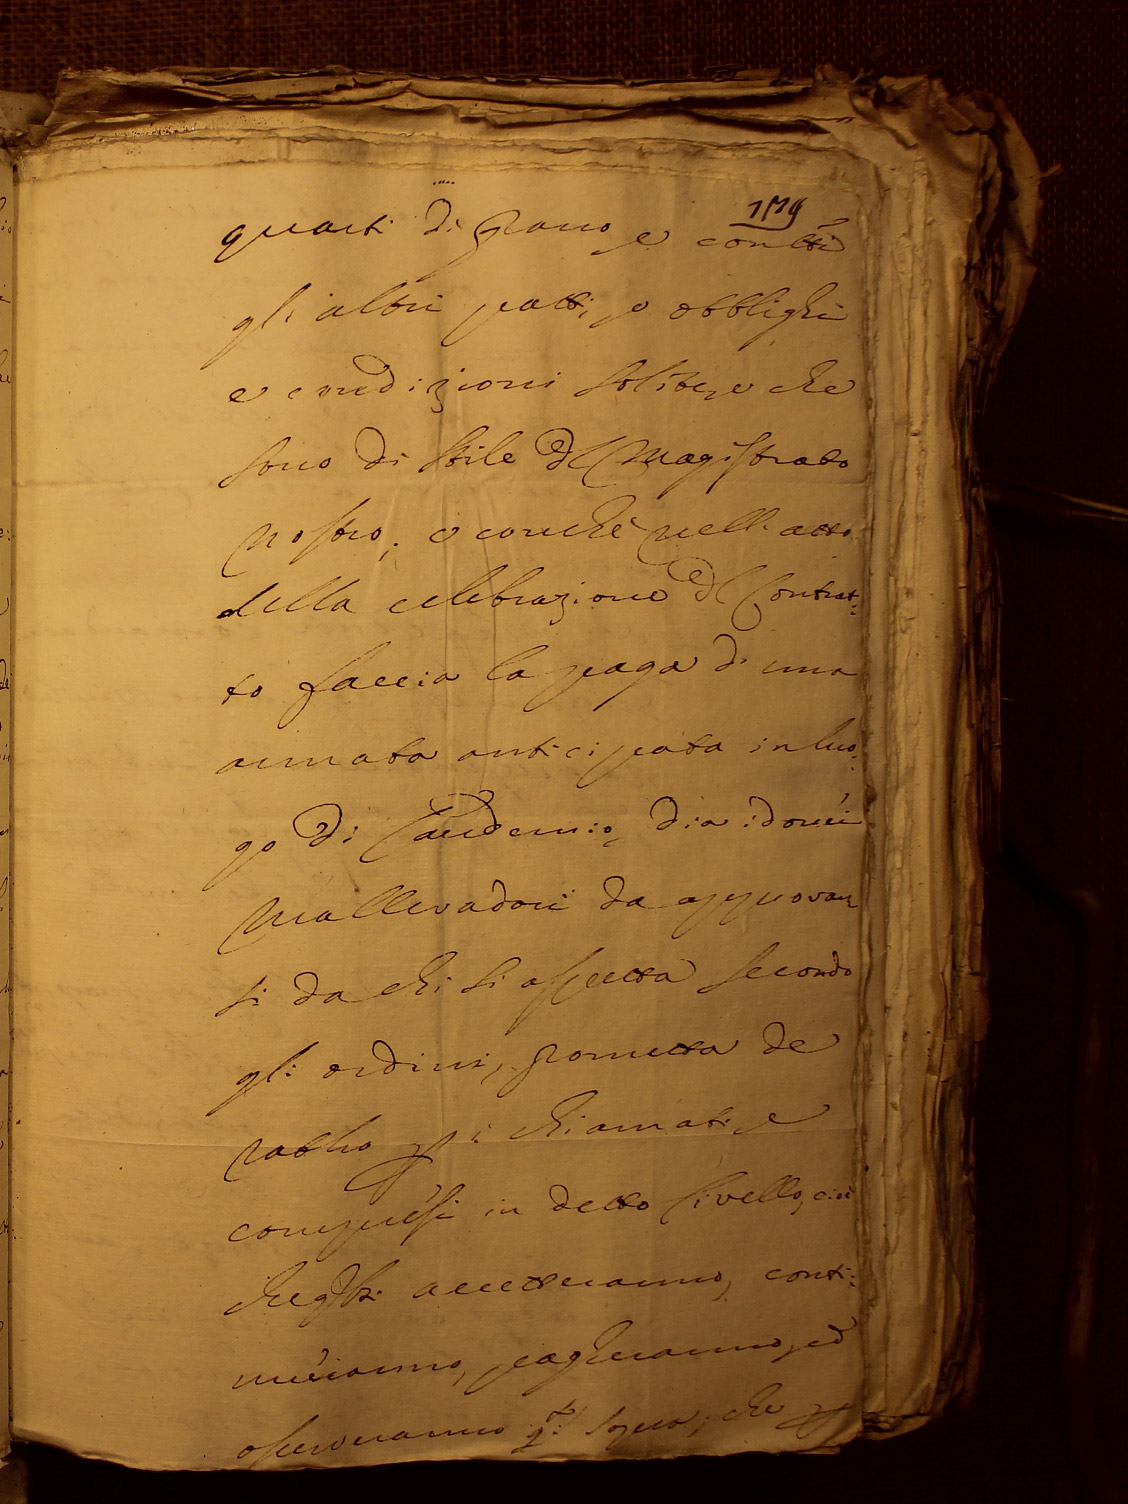 179
quarti di grano, e con tti
gli altri patti, e obblighi
e condizioni solite, e che
sono di stile del Magistrato
nostro; e con che nell'atto
della celebrazione del Contrat:
to faccia la paga di una
annata anticipata in luo:
go di Laudemio, dia idonei
Mallevadori da approvar
si da chi si aspetta secondo
gli ordini, prometta de
ratho p i chiamati, e
compresi in detto Livello, cioè
che qsti accetteranno, conti:
nueranno, pagheranno, ed
osserveranno qto sopra; che p